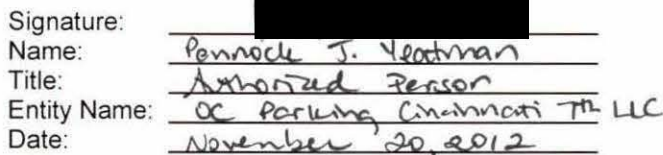 Signature:
Name: Pennock J. Yeatman
Title: Authorized Person
Entity Name: OC Parking Cincinnati 7th LLC
Date: November 20, 2012